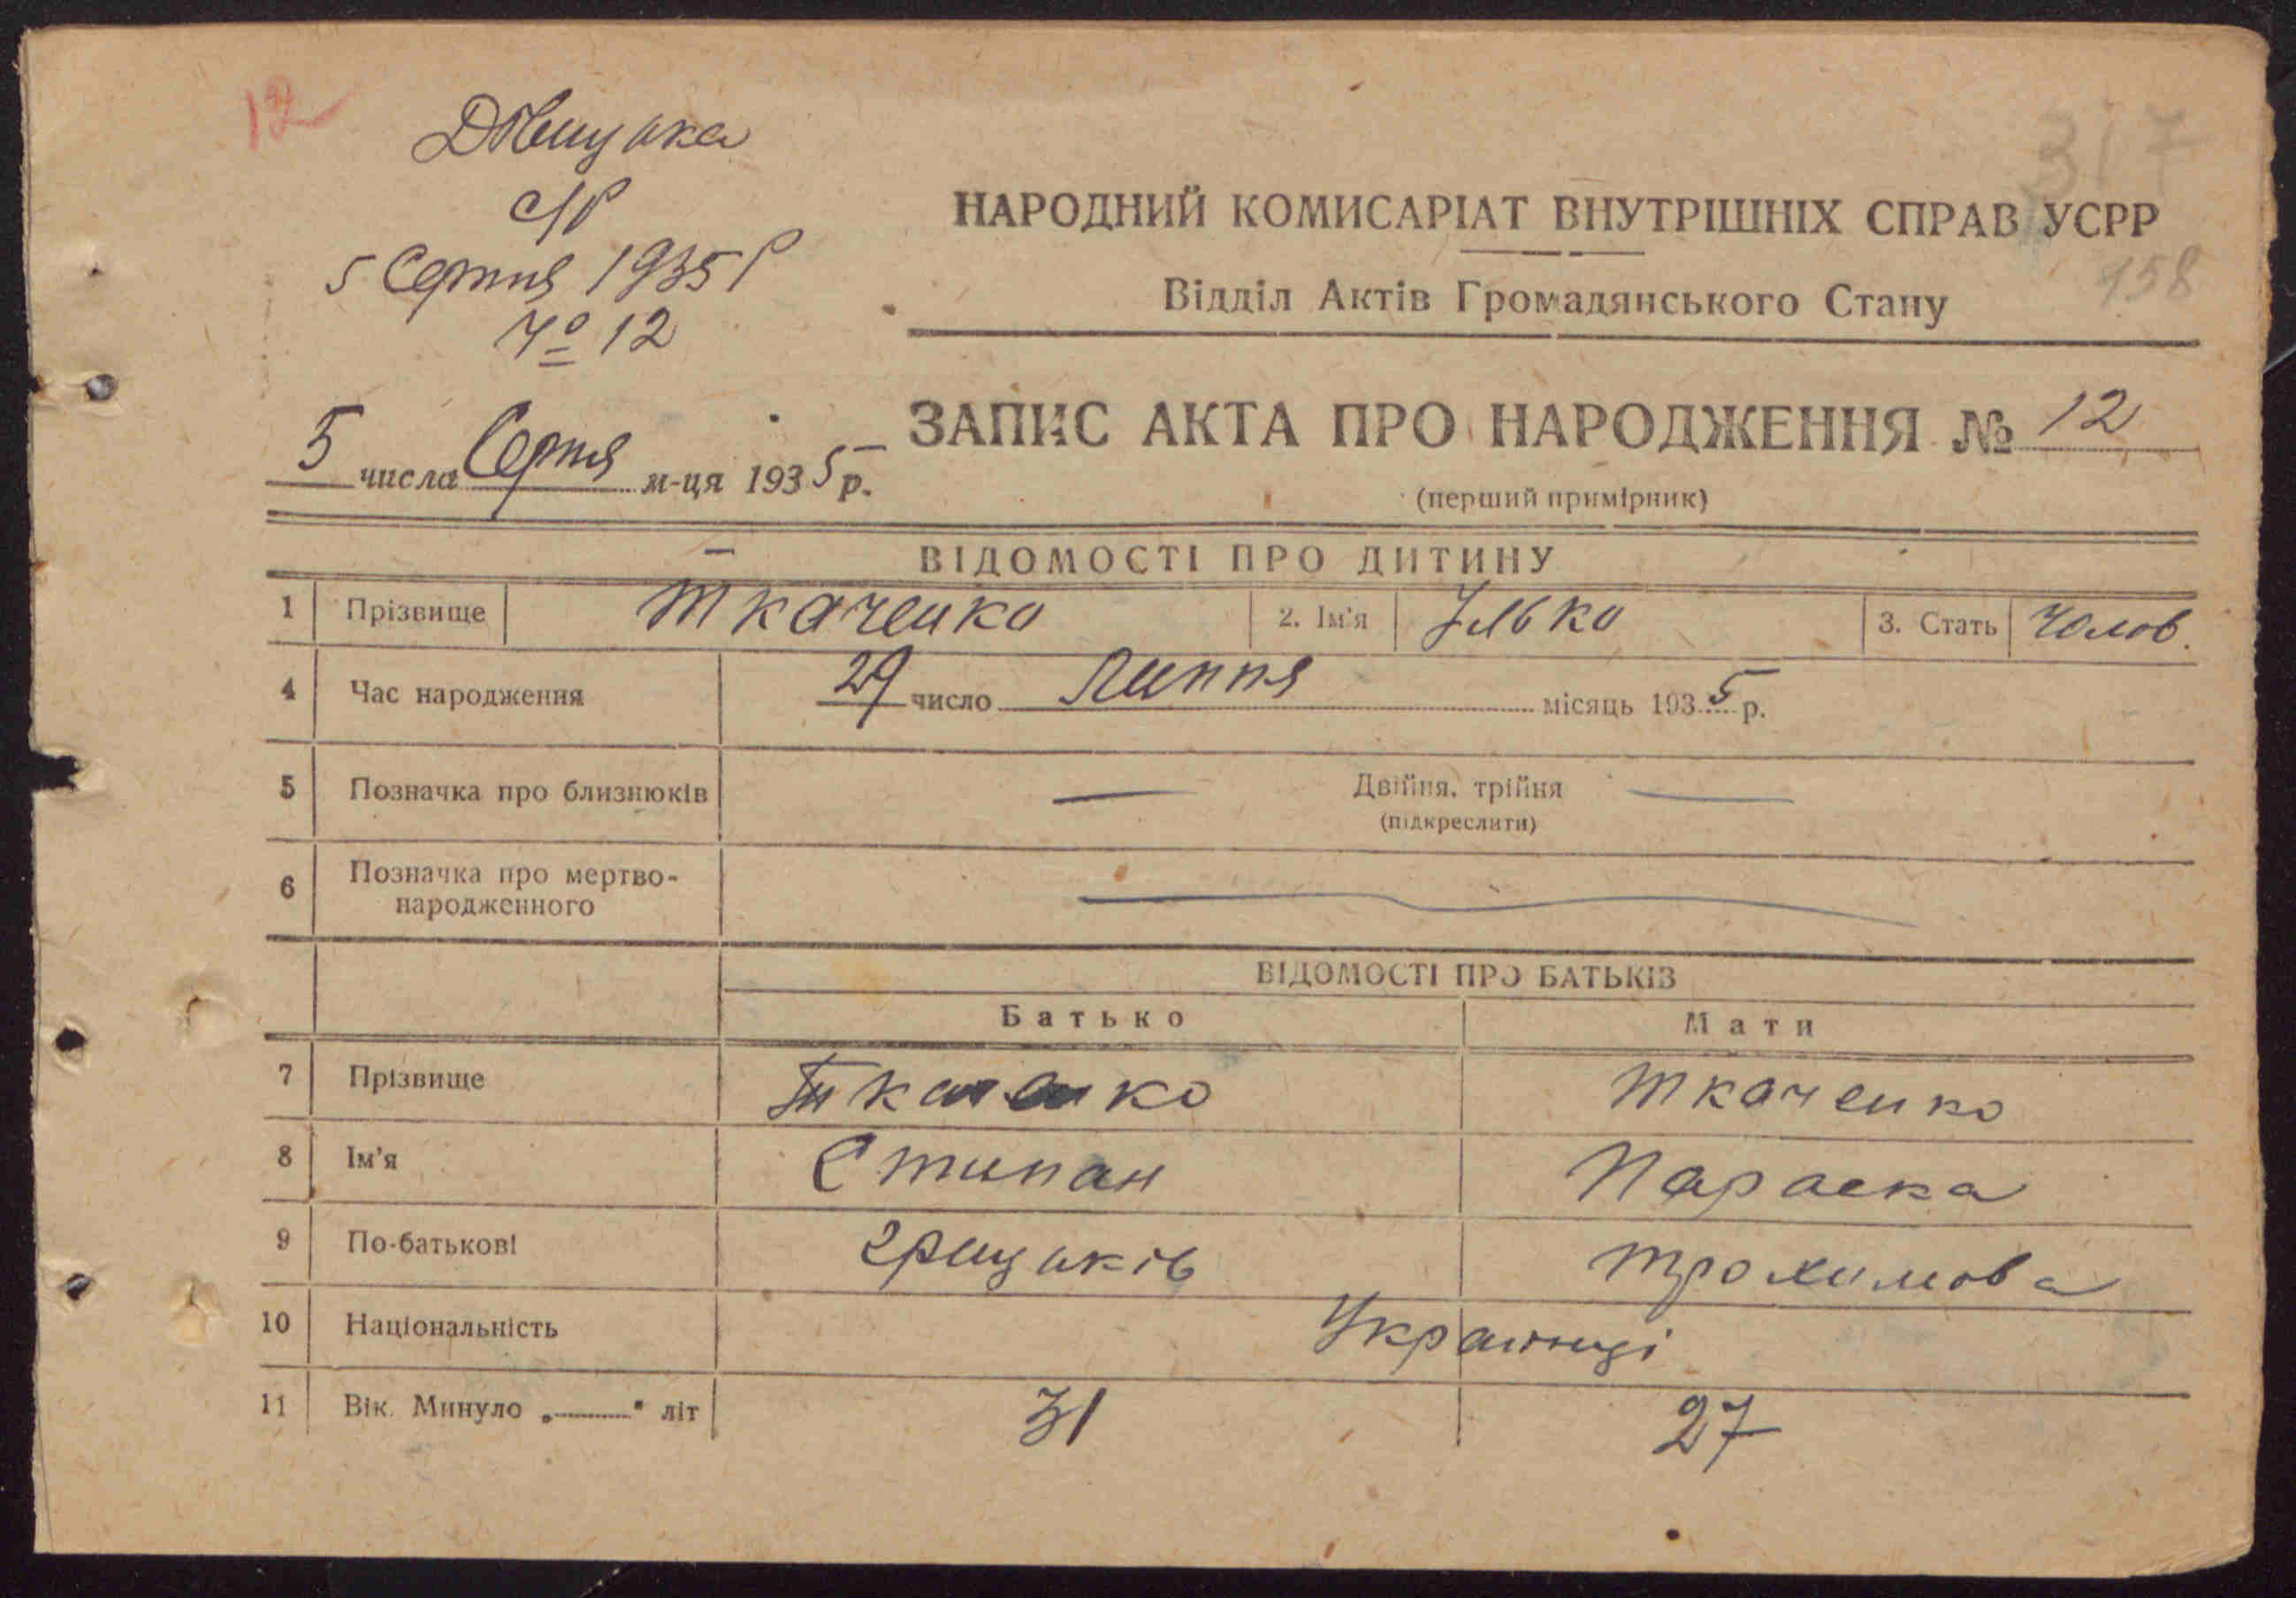 12
с/р
5 Серпня 1935 р
№ 12
317
НАРОДНИЙ КОМИСАРІАТ ВНУТРІШНІХ СПРАВ УСРР
158
Відділ Актів Громадянського Стану
5 числа Серпня м-ця 1935 р.
ЗАПИС АКТА ПРО НАРОДЖЕННЯ № 12
(перший примірник)
ВІДОМОСТІ ПРО ДИТИНУ
1 Прізвище Ткаченко 2. Ім'я Ілько 3. Стать Чолов.
4 Час народження 29 число Липня місяць 1935 р.
5 Позначка про близнюків — Двійня, трійня —
(підкреслити)
6 Позначка про мертво-
народженного —
ВІДОМОСТІ ПРО БАТЬКІВ
Батько Мати
7 Прізвище Ткаченко Ткаченко
8 Ім'я Стипан Параска
9 По-батькові Грицьків Трохимова
10 Національність Українці
11 Вік. Минуло „ " літ 31 27